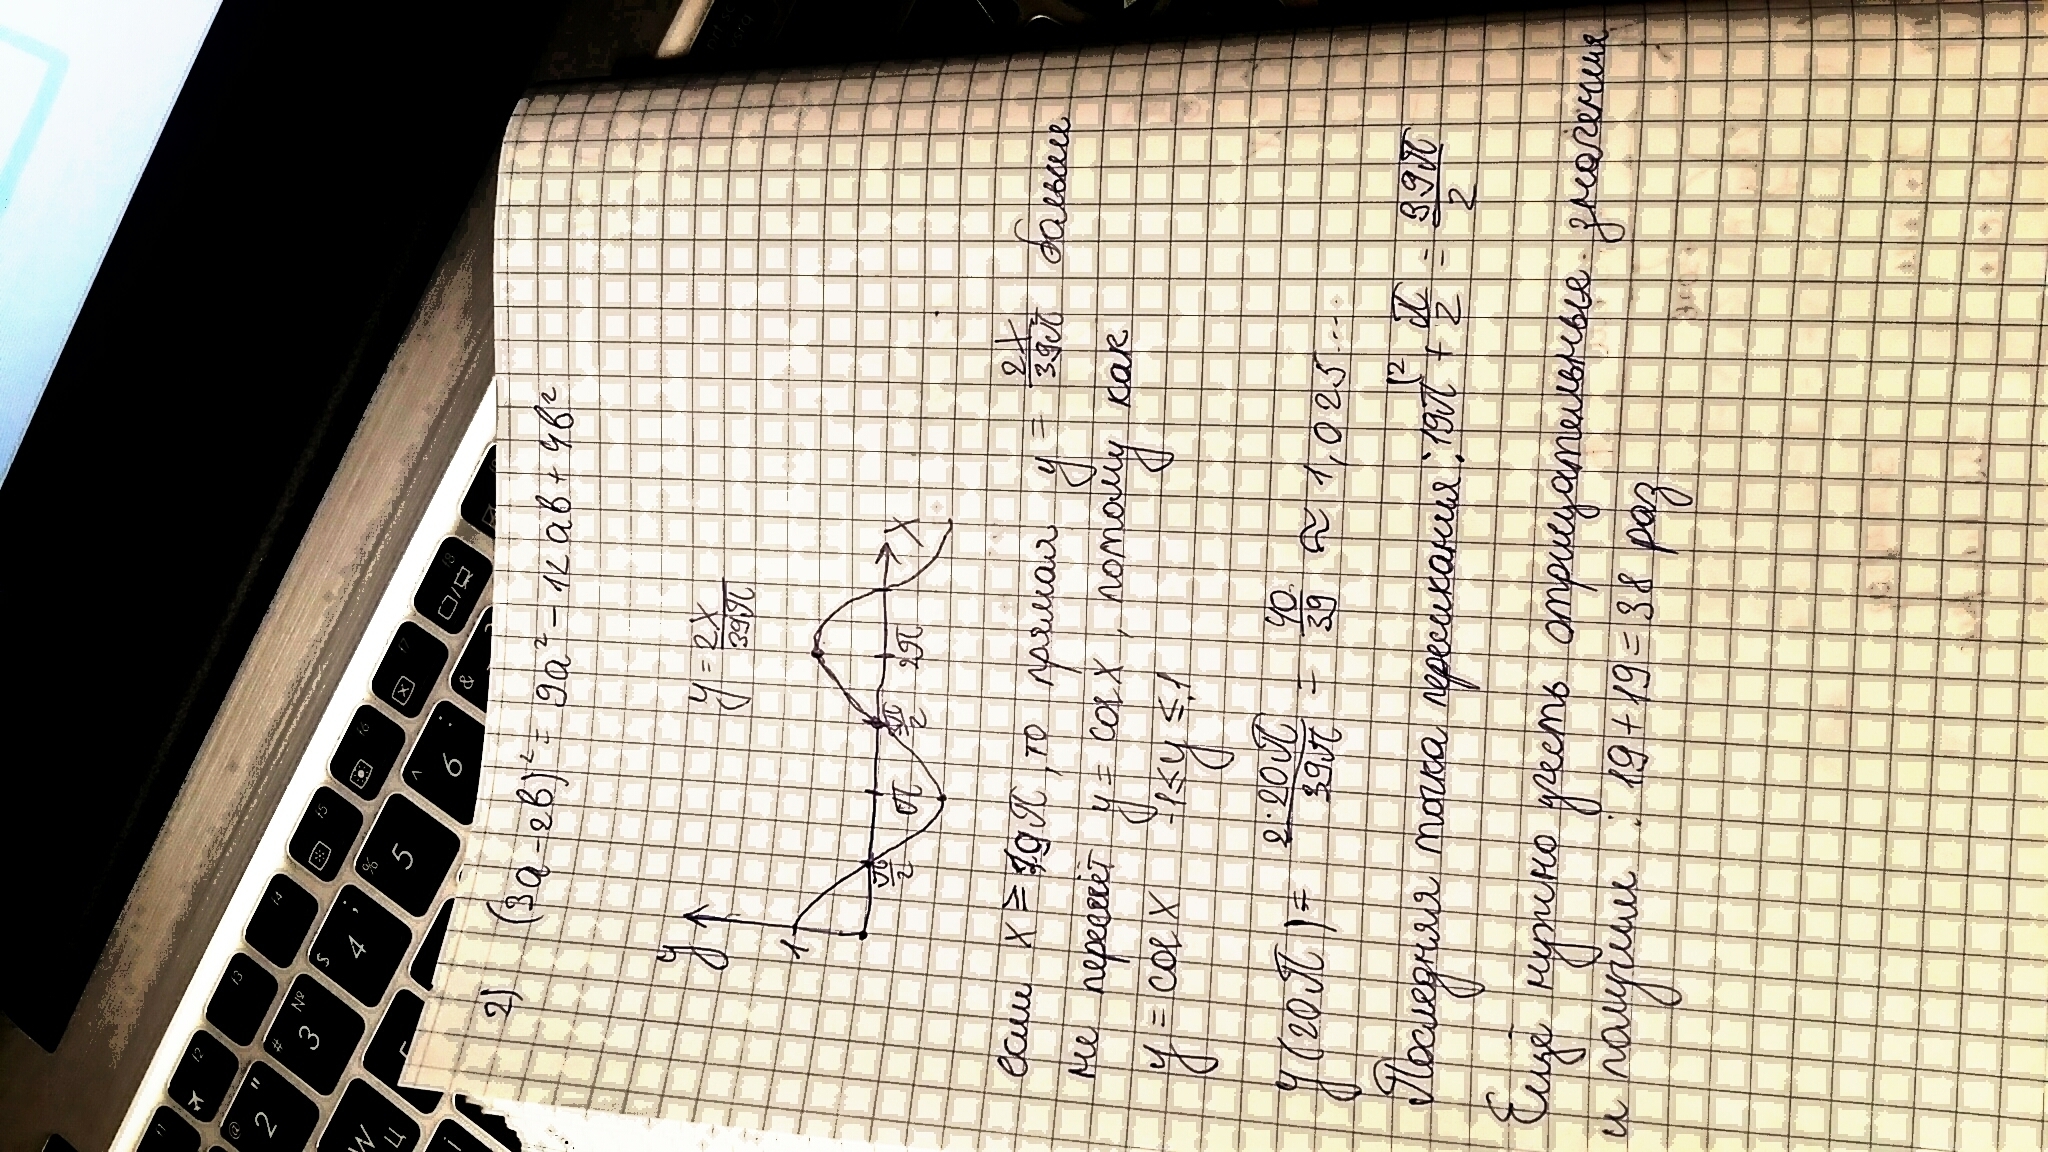 2) (3a-2b)² = 9a² - 12ab + 4b²
y = 2x/39π
y
1
π/2
π
3π/2
2π
x
если x ≥ 19π, то прямая y = 2x/39π больше
не пересеёт y = cos x, потому как
y = cos x -1 ≤ y ≤ 1
y(20π) = 2·20π/39π = 40/39 ≈ 1,025...
Последняя точка пересикания: 19π + π/2 = 39π/2
Ещё нужно учесть отрицательные значения
и получим: 19+19=38 раз